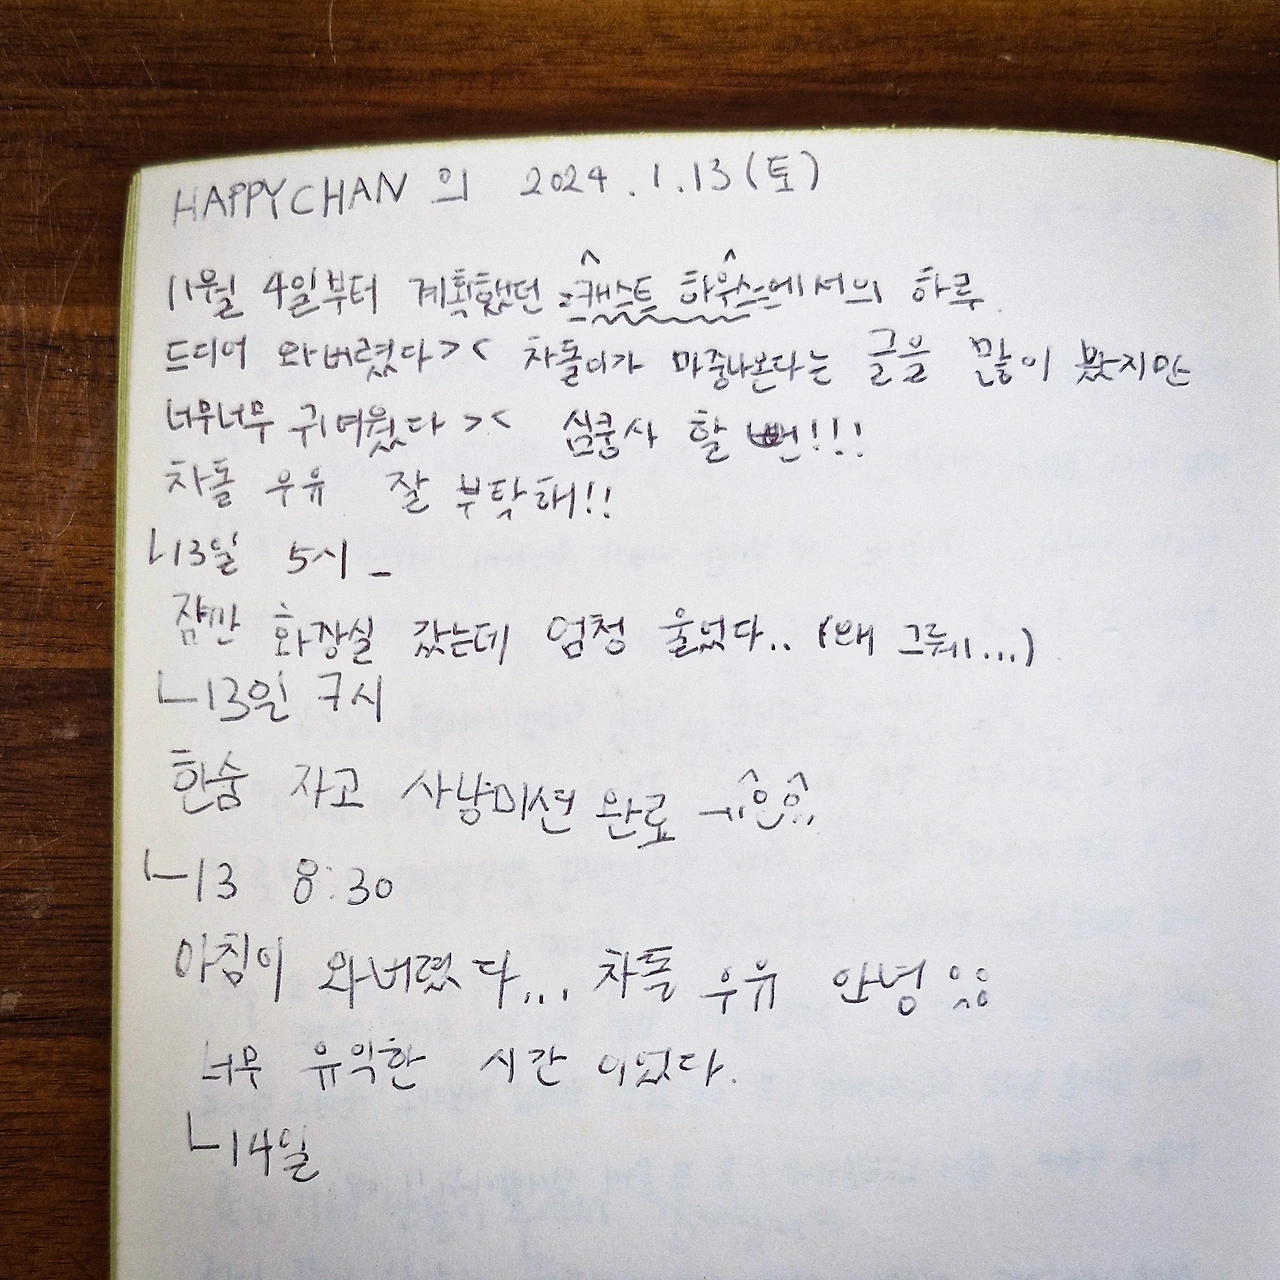 HAPPYCHAN 의 2024.1.13(토)
11월 4일부터 계획했던 캐스트 하우스에서의 하루.
드디어 와버렸다>< 차돌이가 마중나온다는 글을 많이 봤지만
너무너무 귀여웠다>< 심쿵사 할 뻔!!!
차돌 우유 잘 부탁해!!
ㄴ13일 5시_
잠깐 화장실 갔는데 엄청 울었다.. (왜 그뤠...)
ㄴ13일 7시
한숨 자고 사냥미션 완료
ㄴ13 8:30
아침이 와버렸다... 차돌 우유 안녕
너무 유익한 시간이었다.
ㄴ14일